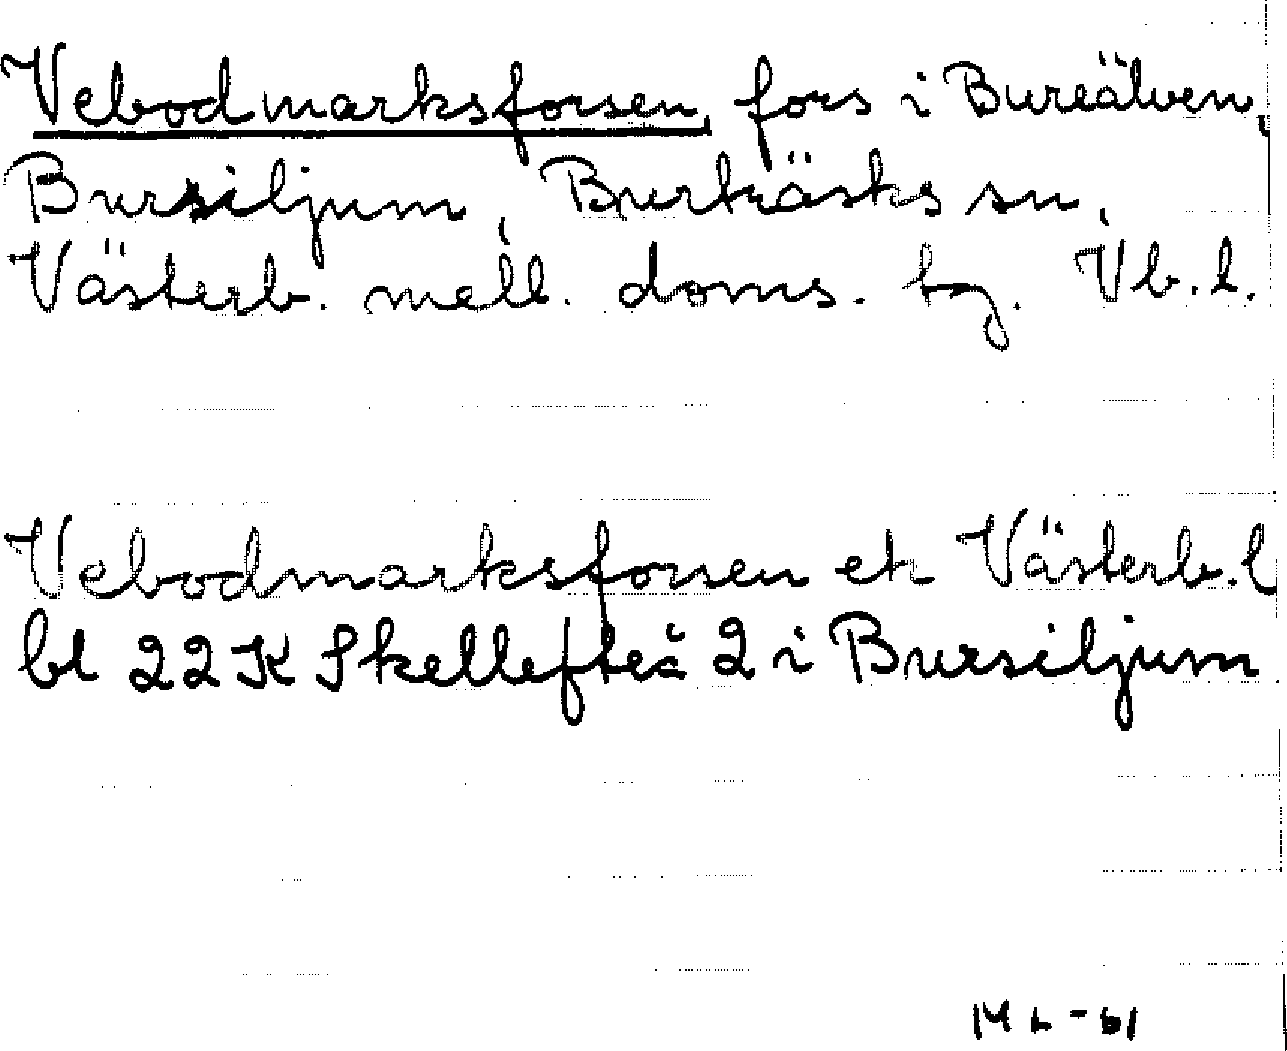 Vebodmarksforsen, fors i Bureälven,
Bursiljum, Burträsks sn,
Västerb. mell. doms. tg. Vb. l.
Vebodmarksforsen ek Västerb. l
bl 22 K Skellefteå 2 i Bursiljum